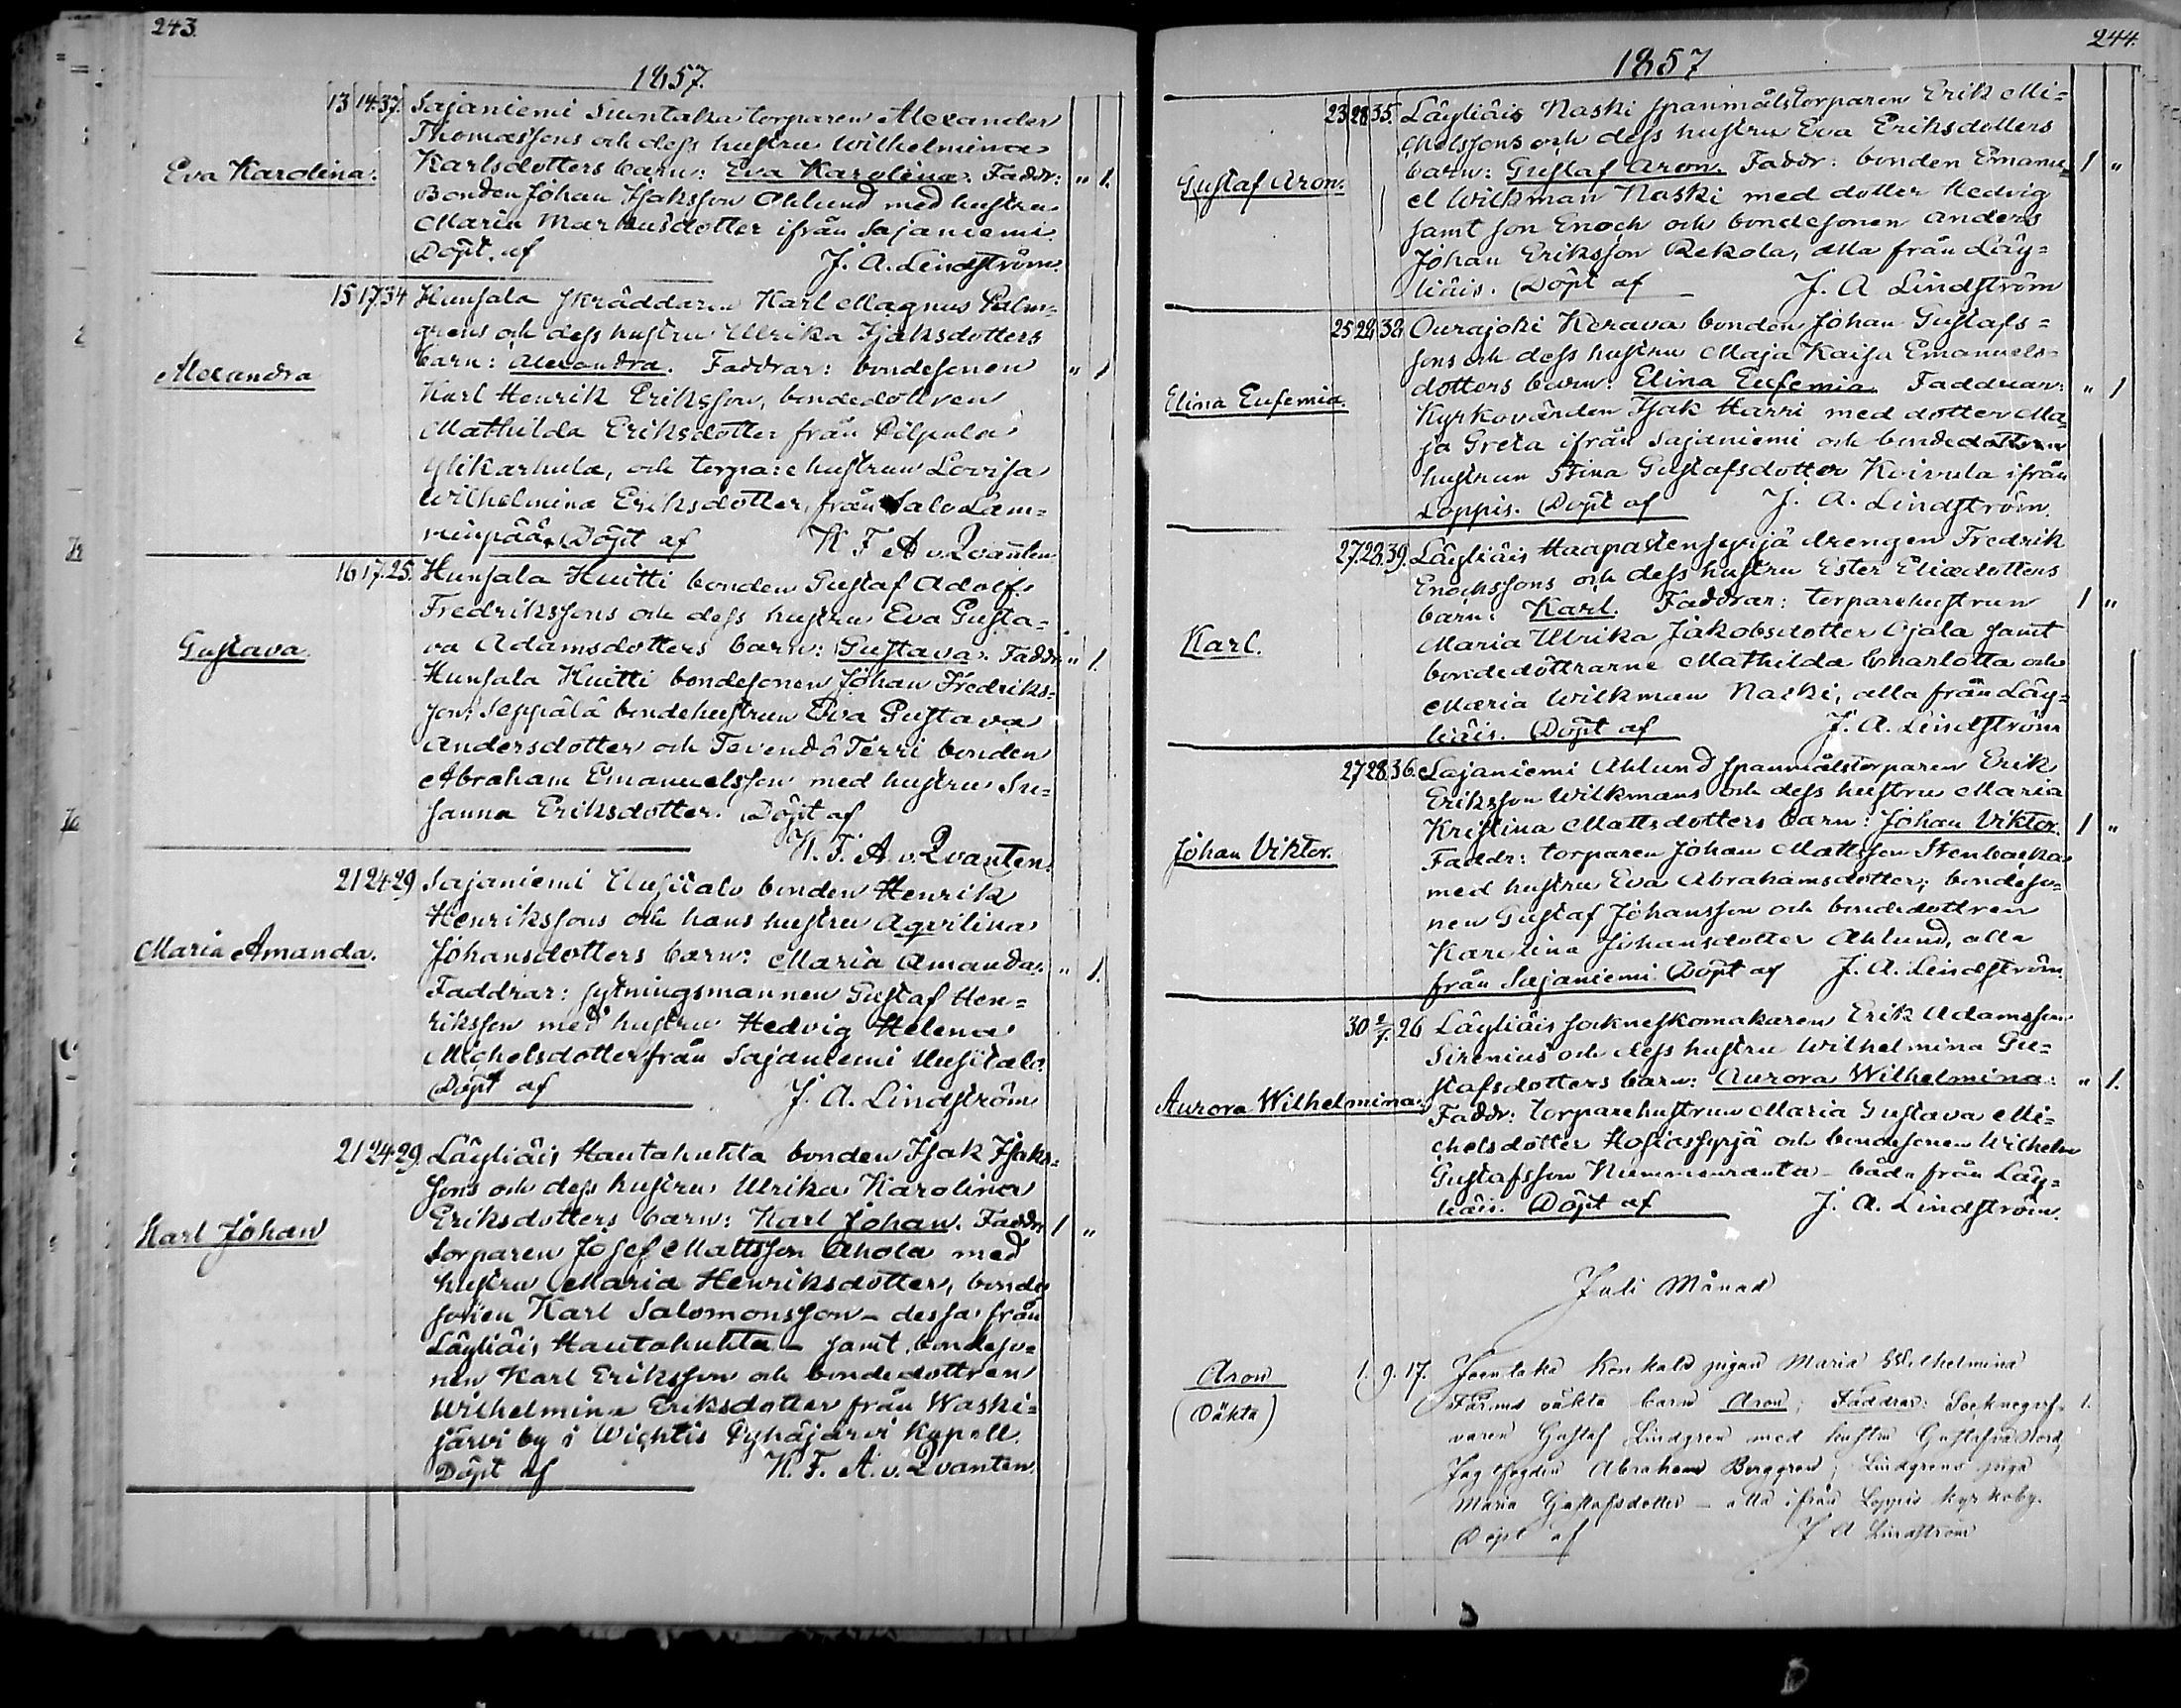 243.
1857.
13 14. 37. Sajaniemi Suontaka torparen Alexander
Thomassons och dess hustru Wilhelmina
Eva Karolina. Karlsdotters barn: Eva Karolina. Faddr: " 1.
Bonden Johan Isaksson Ahlund med hustru
Maria Markusdotter ifrån Sajaniemi.
Döpt. af J. A. Lindström.
15 17. 34 Hunsala skräddaren Karl Magnus Palm=
grens och dess hustru Ulrika Isaksdotters
Alexandra barn: Alexandra. Faddrar: bondesonen " 1
Karl Henrik Eriksson, bondedottren
Mathilda Eriksdotter från Pilpala
Ylikarhula, och torpare hustrun Lovisa
Wilhelmina Eriksdotter, från Salo Lam=
minpää. Döpt af K F A v. Qvanten
16 17. 25. Hunsala Huitti bonden Gustaf Adolf
Fredrikssons och dess hustru Eva Gusta=
Gustava. va Adamsdotters barn: Gustava. Faddr " 1.
Hunsala Huitti bondesonen Johan Fredriks=
son; Seppälä bondehustrun Eva Gustava
Andersdotter och Tevendö Terri bonden
Abraham Emanuelsson med hustru Su=
sanna Eriksdotter. Döpt af
K. F. A v. Qvanten.
21 24. 29 Sajaniemi Uusitalo bonden Henrik
Henrikssons och hans hustru Aqvilina
Maria Amanda. Johansdotters barn: Maria Amanda. " 1.
Faddrar: sytningsmannen Gustaf Hen=
riksson med hustru Hedvig Helena
Michelsdotter från Sajaniemi Uusitalo.
Döpt af J. A. Lindström
21 24. 29. Läyliäis Hautahuhta bonden Isak Isaks=
sons och dess hustru Ulrika Karolina
Karl Johan Eriksdotters barn: Karl Johan. Faddr 1 "
torparen Josef Mattsson Ahola med
hustru Maria Henriksdotter, bonde
sonen Karl Salomonsson – dessa från
Läyliäis Hautahuhta – samt bondeso=
nen Karl Eriksson och bondedottren
Wilhelmina Eriksdotter från Waski=
järvi by i Wichtis Pyhäjärvi Kapell.
Döpt af K. F. A. v. Qvanten.
244.
1857
23 28 35. Läyliäis Naski spanmålstorparen Erik Mi=
chelssons och dess hustru Eva Eriksdotters
Gustaf Aron. barn: Gustaf Aron. Faddr: bonden Emanu= 1 "
el Wilkman Naski med dotter Hedvig
samt son Enoch och bondesonen Anders
Johan Eriksson Rekola, alla från Läy=
liäis. Döpt af J. A Lindström
25 28. 32. Ourajoki Kerava bonden Johan Gustafs=
sons och dess hustru Maja Kaisa Emanuels=
Elina Eufemia. dotters barn: Elina Eufemia. Faddrar: " 1
Kyrkovärden Isak Harri med dotter Ma=
ja Greta ifrån Sajaniemi och bondedottren
hustrun Stina Gustafsdotter Koivula ifrån
Loppis. Döpt af J. A. Lindström.
27. 28. 39. Läyliäis Haapastensyrjä drengen Fredrik
Enochssons och dess hustru Ester Eliædotters
Karl. barn: Karl. Faddrar: torparehustrun 1 "
Maria Ulrika Jakobsdotter Ojala samt
bondedöttrarne Mathilda Charlotta och
Maria Wilkman Naski, alla från Läy=
liäis. Döpt af J. A. Lindström
27 28. 36. Sajaniemi Ahlund spanmålstorparen Erik
Eriksson Wilkmans och dess hustru Maria
Johan Viktor. Kristina Mattsdotters barn: Johan Viktor. 1 "
Faddr: torparen Johan Mattsson Stenbacka
med hustru Eva Abrahamsdotter; bondeso=
nen Gustaf Johansson och bondedottren
Karolina Johansdotter Ahlund, alla
från Sajaniemi. Döpt af J. A. Lindström.
30 2/7. 26 Läyliäis sockneskomakaren Erik Adamsson
Sirenius och dess hustru Wilhelmina Gu=
Aurora Wilhelmina. stafsdotters barn: Aurora Wilhelmina. " 1.
Faddr: torparehustrun Maria Gustava Mi=
chelsdotter Hosiossyrjä och bondesonen Wilhelm
Gustafsson Nummenranta – båda från Läy=
liäis. Döpt af J. A. Lindström.
Juli Månad
Aron 1. 9. 17. Joentaka pigan Maria Wilhelmina
(Oäkta) oäkta barn Aron; Faddrar: 1.
Gustaf Lindgren med hustru Gustafva
Abraham Berggren; Lindgrens piga
Maria Gustafsdotter – alla ifrån Loppis kyrkoby.
Döpt af J A Lindström